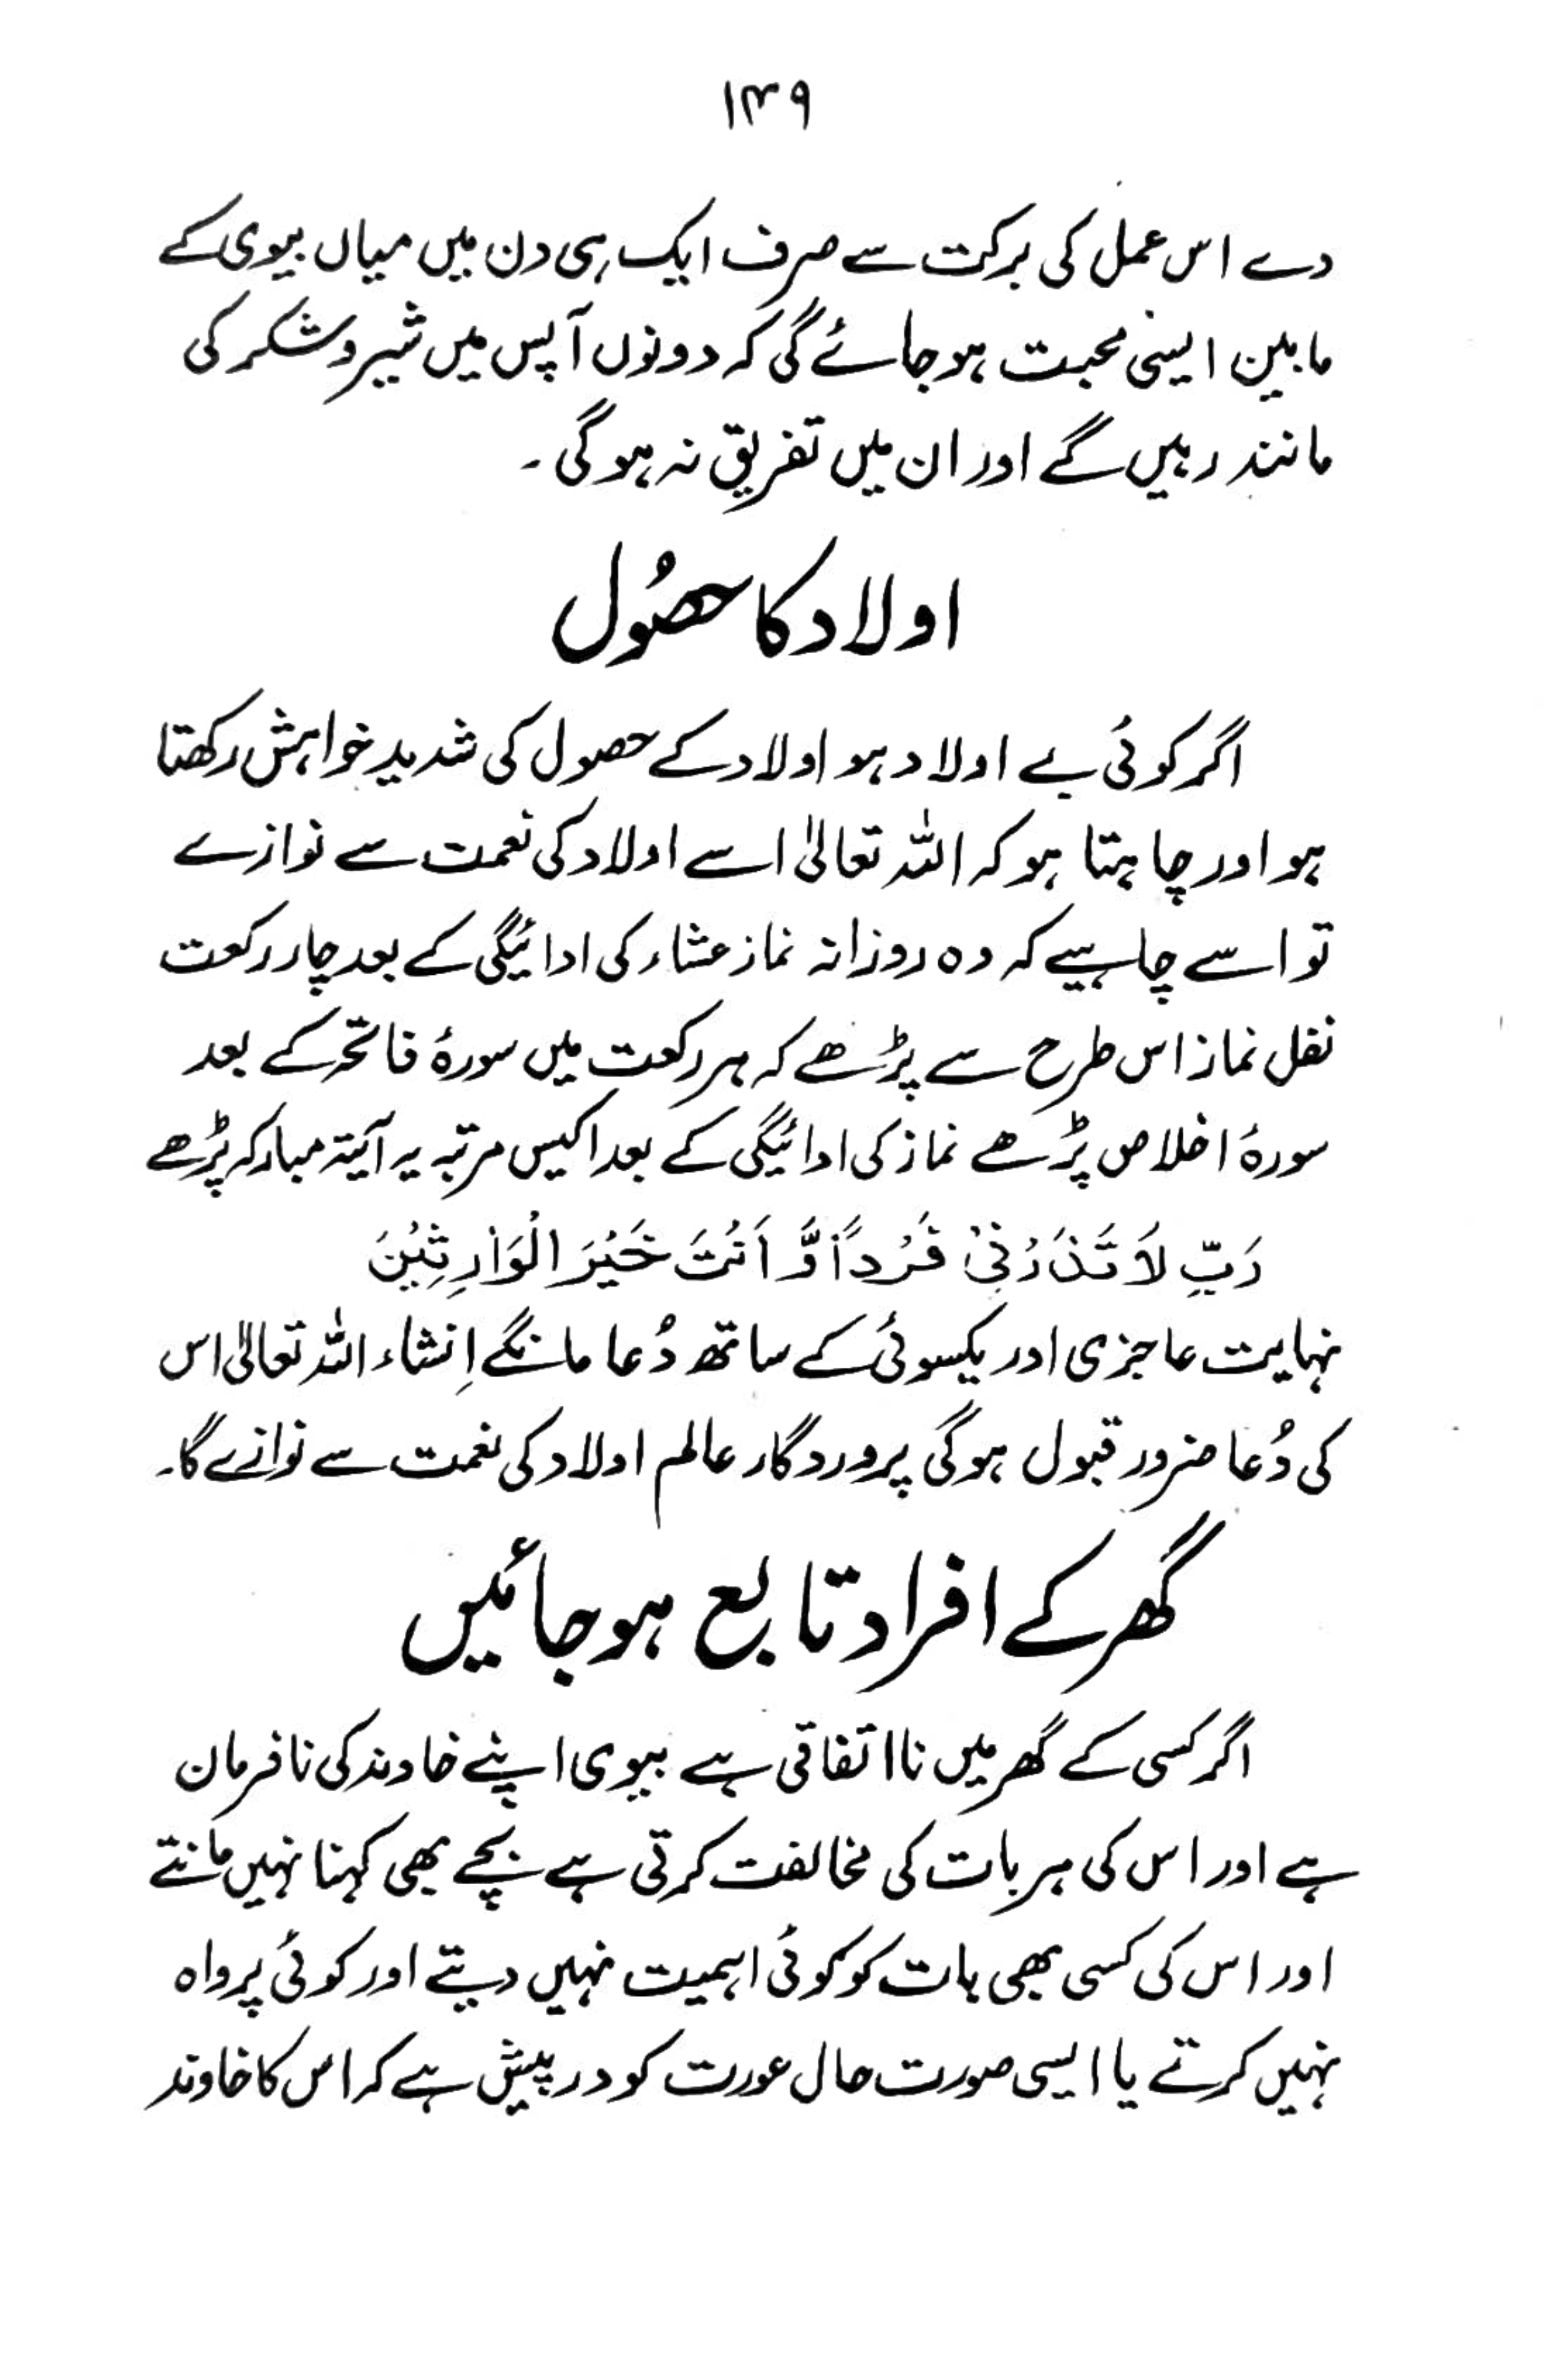 ۱۳۹
دے اس عمل کی برکت سے صرف ایک ہی دن میں میاں بیوی کے
مابین ایسی محبت ہو جائے گی کہ دونوں آپس میں شیر و شکر کی
مانند رہیں گے اور ان میں تفریق نہ ہو گی ۔
اولاد کا حصُول
اگر کوئی بے اولاد ہو اولاد کے حصول کی شدید خواہش رکھتا
ہو اور چاہتا ہو کہ اللہ تعالیٰ اسے اولاد کی نعمت سے نوازے
تو اسے چاہیے کہ وہ روزانہ نماز عشاء کی ادائیگی کے بعد چار رکعت
نفل نماز اس طرح سے پڑھے کہ ہر رکعت میں سورۂ فاتحہ کے بعد
سورۂ اخلاص پڑھے نماز کی ادائیگی کے بعد اکیس مرتبہ یہ آیۃ مبارکہ پڑھے
رَبِّ لَا تَذَرْنِیْ فَرْدًا وَّ اَنْتَ خَیْرَ الْوَارِثِیْنَ
نہایت عاجزی اور یکسوئی کے ساتھ دُعا مانگے اِنشاء اللہ تعالیٰ اس
کی دُعا ضرور قبول ہو گی پروردگار عالم اولاد کی نعمت سے نوازے گا۔
گھر کے افراد تابع ہو جائیں
اگر کسی کے گھر میں نااتفاقی ہے بیوی اپنے خاوند کی نافرمان
ہے اور اس کی ہر بات کی مخالفت کرتی ہے بچے بھی کہنا نہیں مانتے
اور اس کی کسی بھی بات کو کوئی اہمیت نہیں دیتے اور کوئی پرواہ
نہیں کرتے یا ایسی صورت حال عورت کو درپیش ہے کہ اس کا خاوند